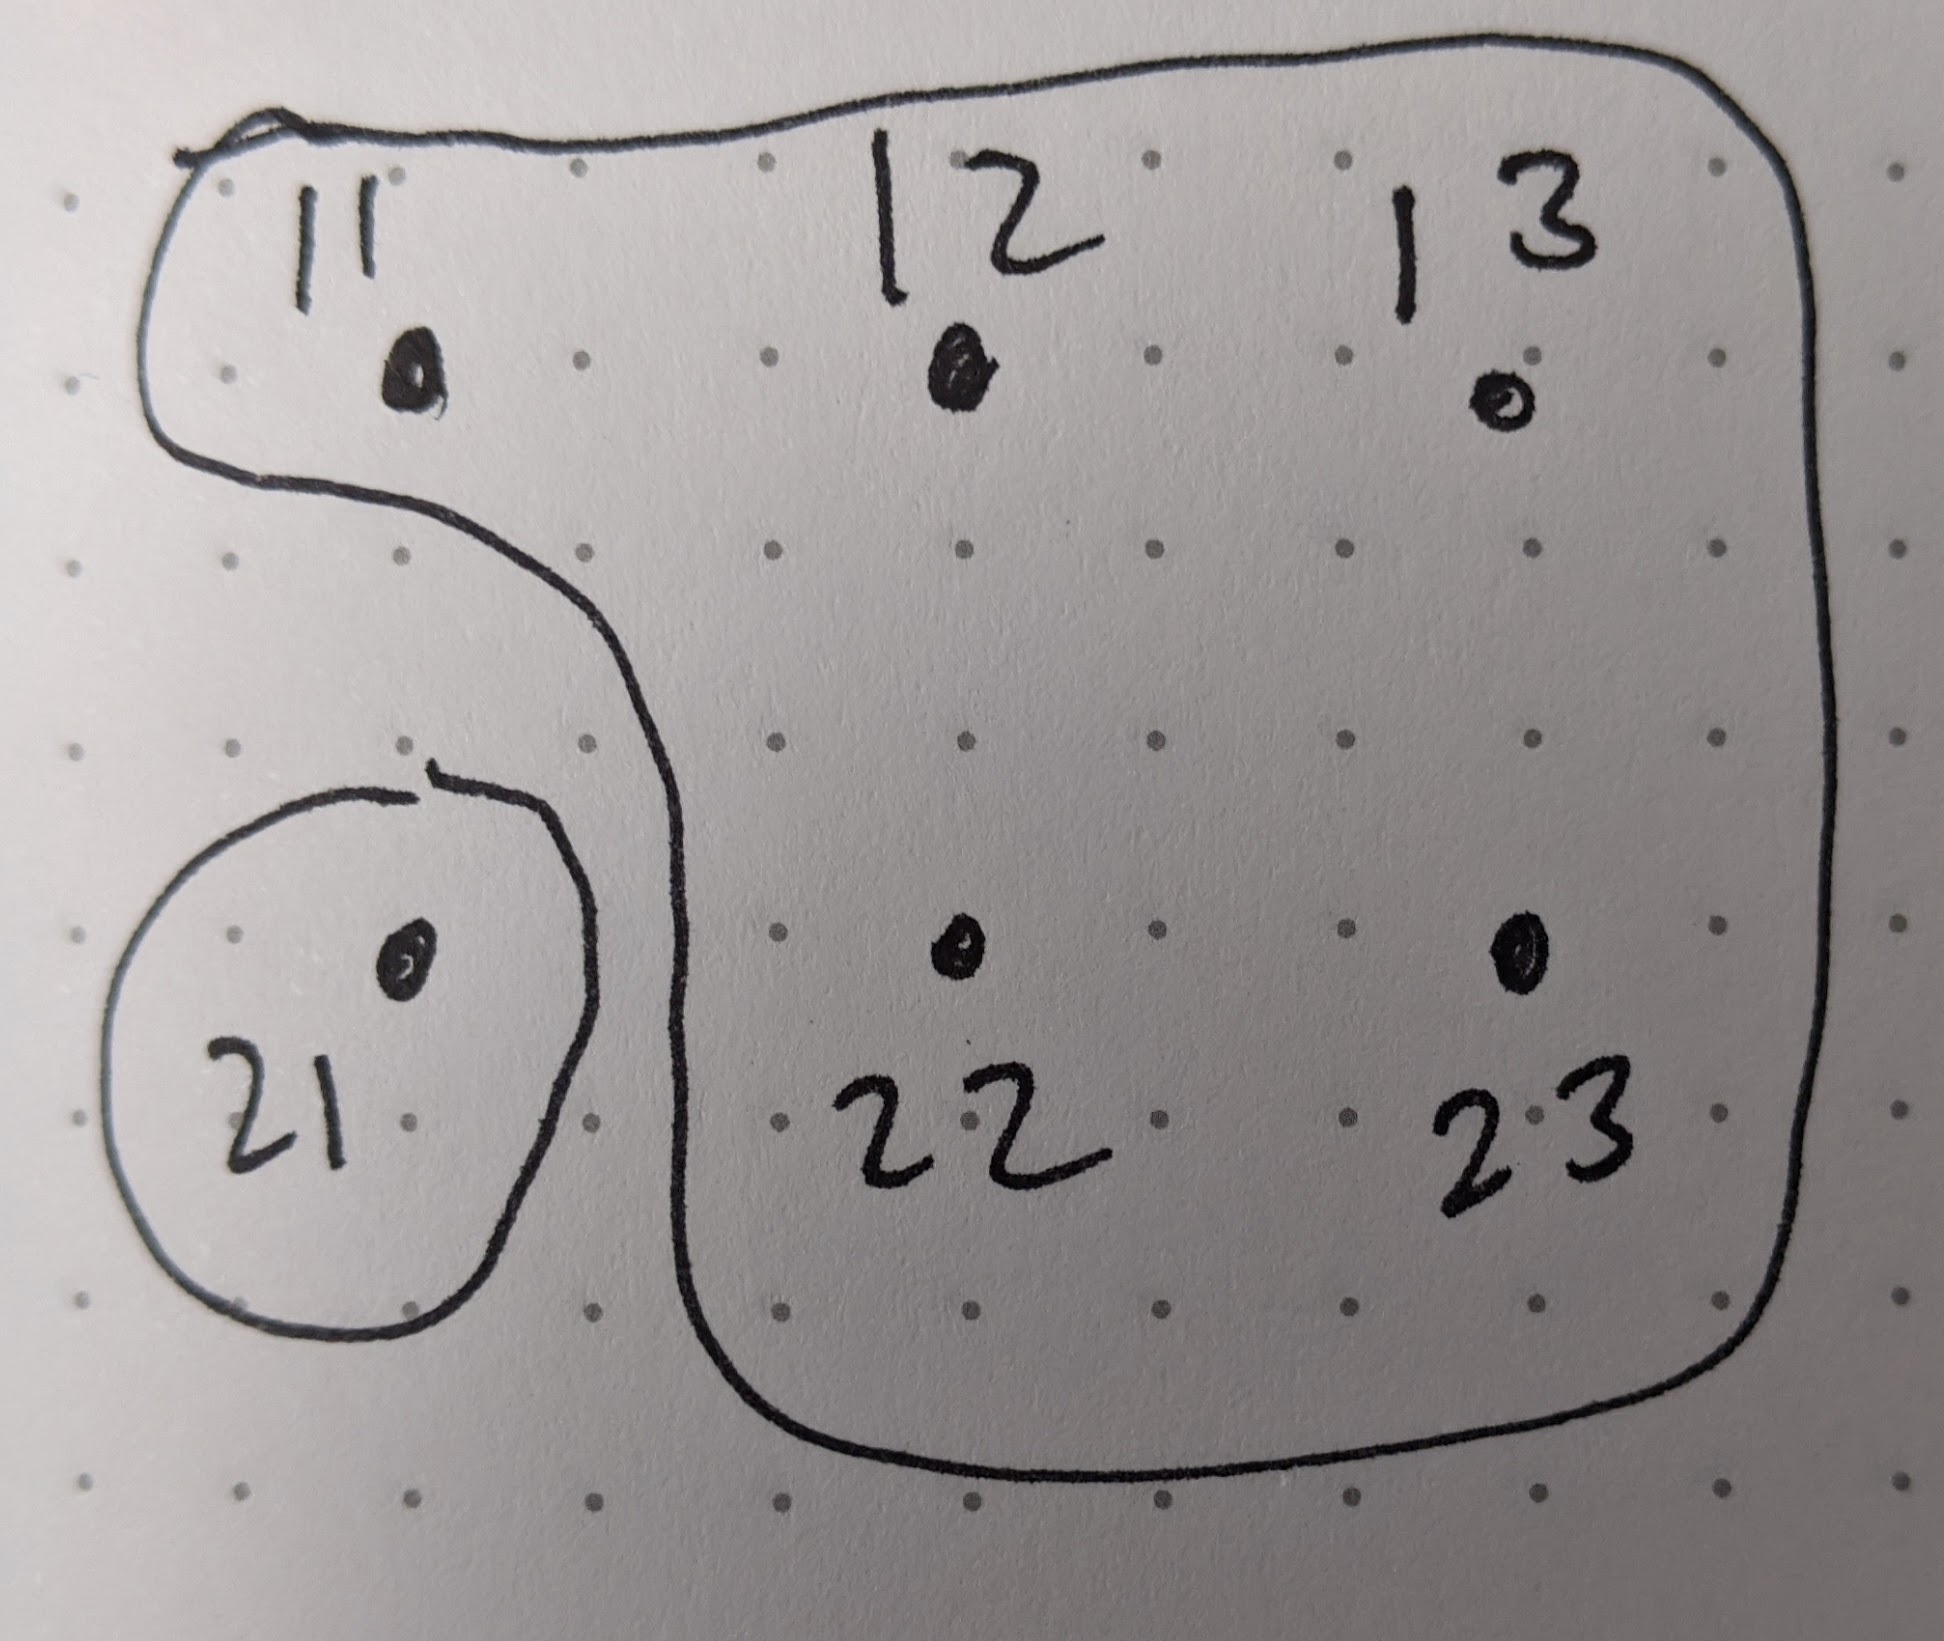 11 12 13
21 22 23